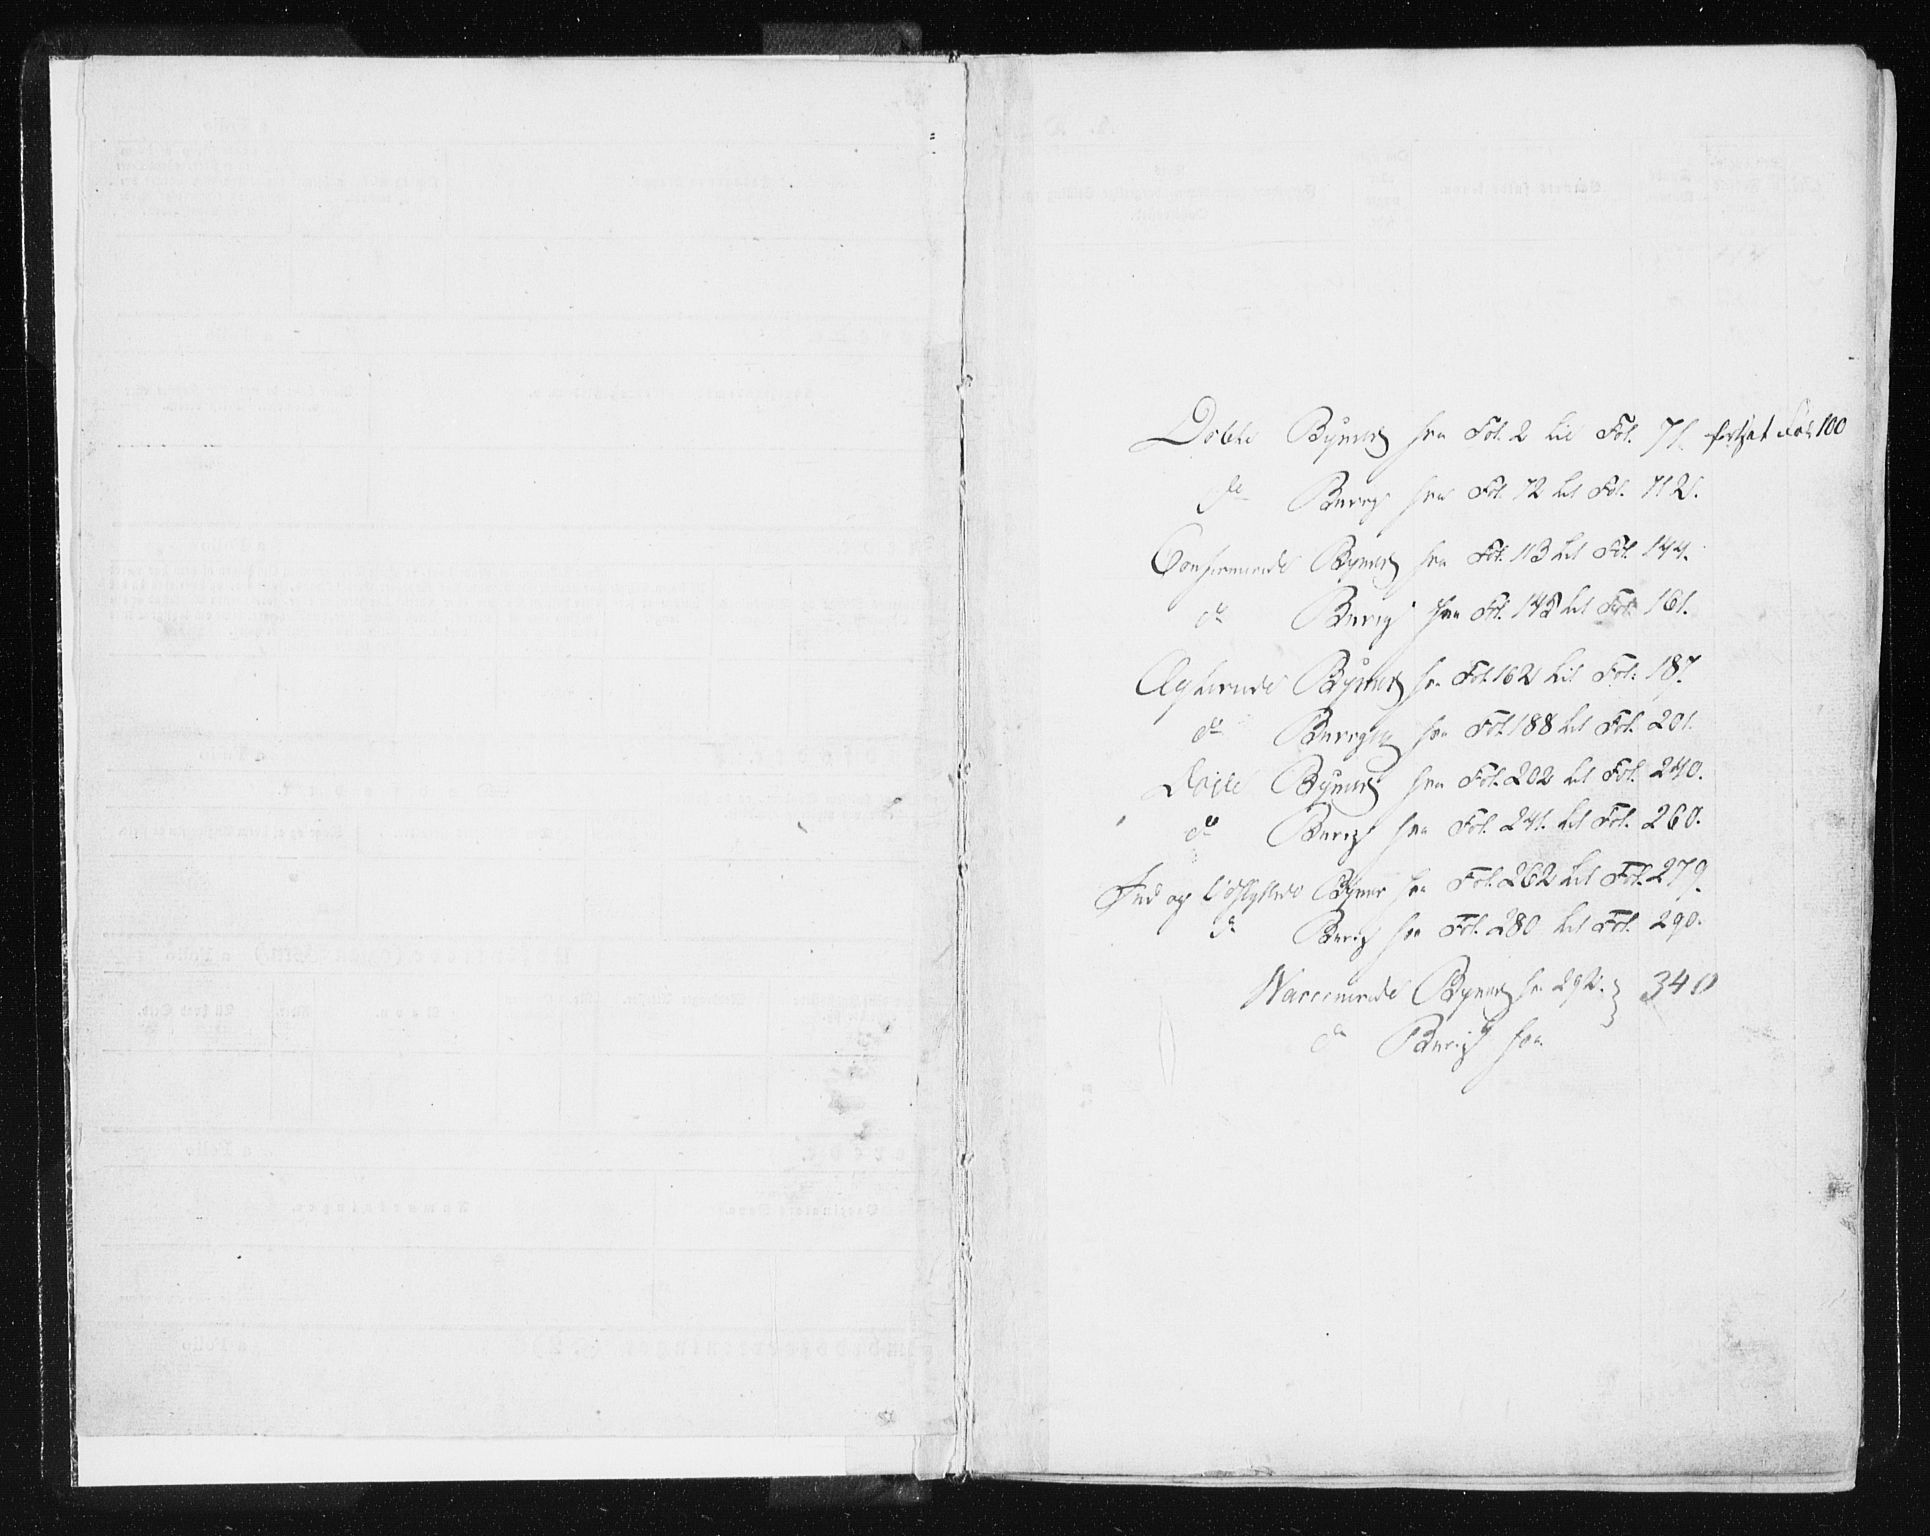 Døbte Bynæs fra Fol. 2 til Fol. 71. fortsat Fol. 100
do Buvig fra Fol. 72 til Fol. 112.
Confirmerede Bynæs fra Fol. 113 til Fol. 144.
do Buvig fra Fol. 145 til Fol. 161.
Egteviede Bynæs fra Fol. 162 til Fol. 187.
do Buvigen fra Fol. 188 til Fol. 201.
Døde Bynæs fra Fol. 202 til Fol. 240.
do Buvig fra Fol. 241. til Fol. 260.
Ind og Udflyttede Bynæs fra Fol. 262 til Fol. 279.
do Buvig fra Fol. 280 til Fol. 290.
Vaccinerede Bynæs fra 292. } 340
do Buvig fra